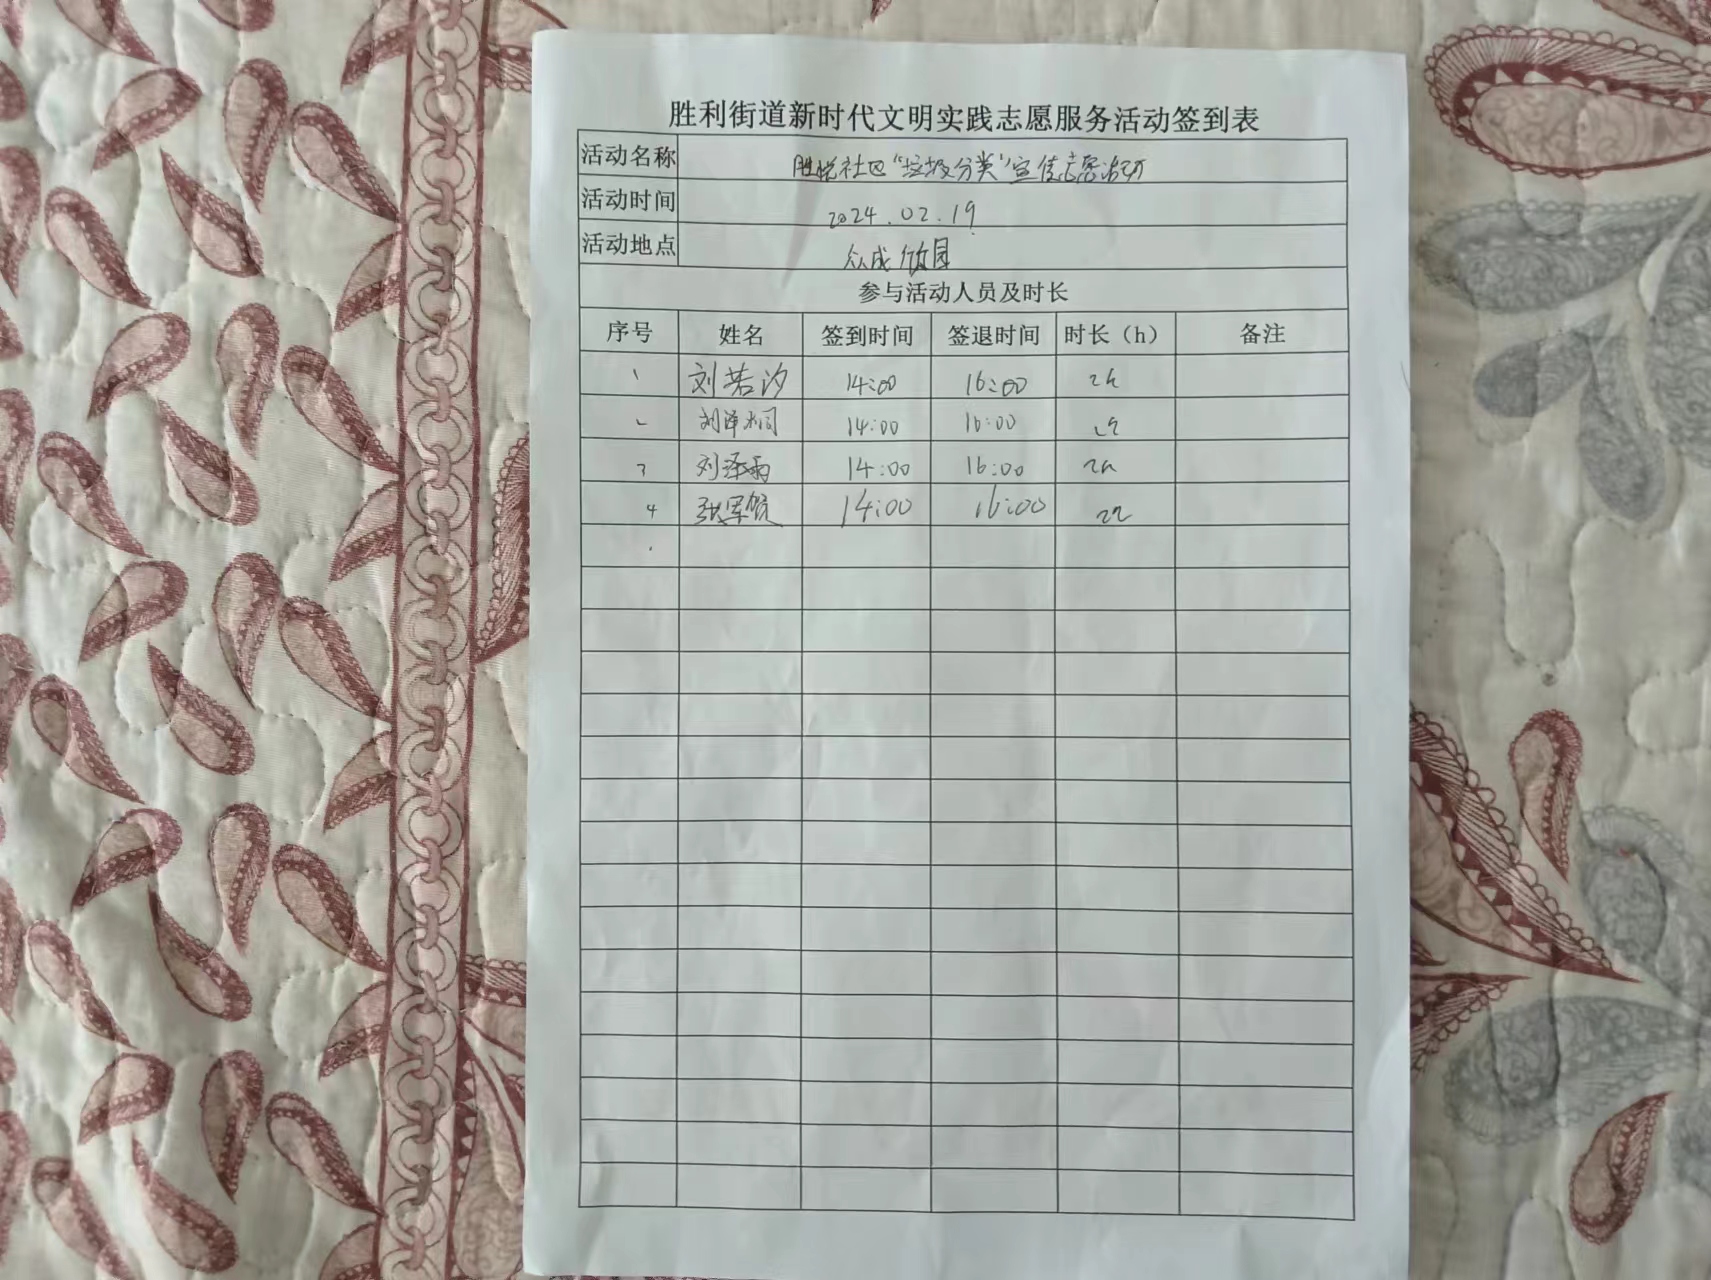 胜利街道新时代文明实践志愿服务活动签到表
活动名称 胜悦社区“垃圾分类”宣传志愿活动
活动时间 2024.02.19
活动地点 众成佳园
参与活动人员及时长
序号 姓名 签到时间 签退时间 时长（h） 备注
1 刘若汐 14:00 16:00 2h
2 刘泽桐 14:00 16:00 2h
3 刘泽雨 14:00 16:00 2h
4 张军航 14:00 16:00 2h